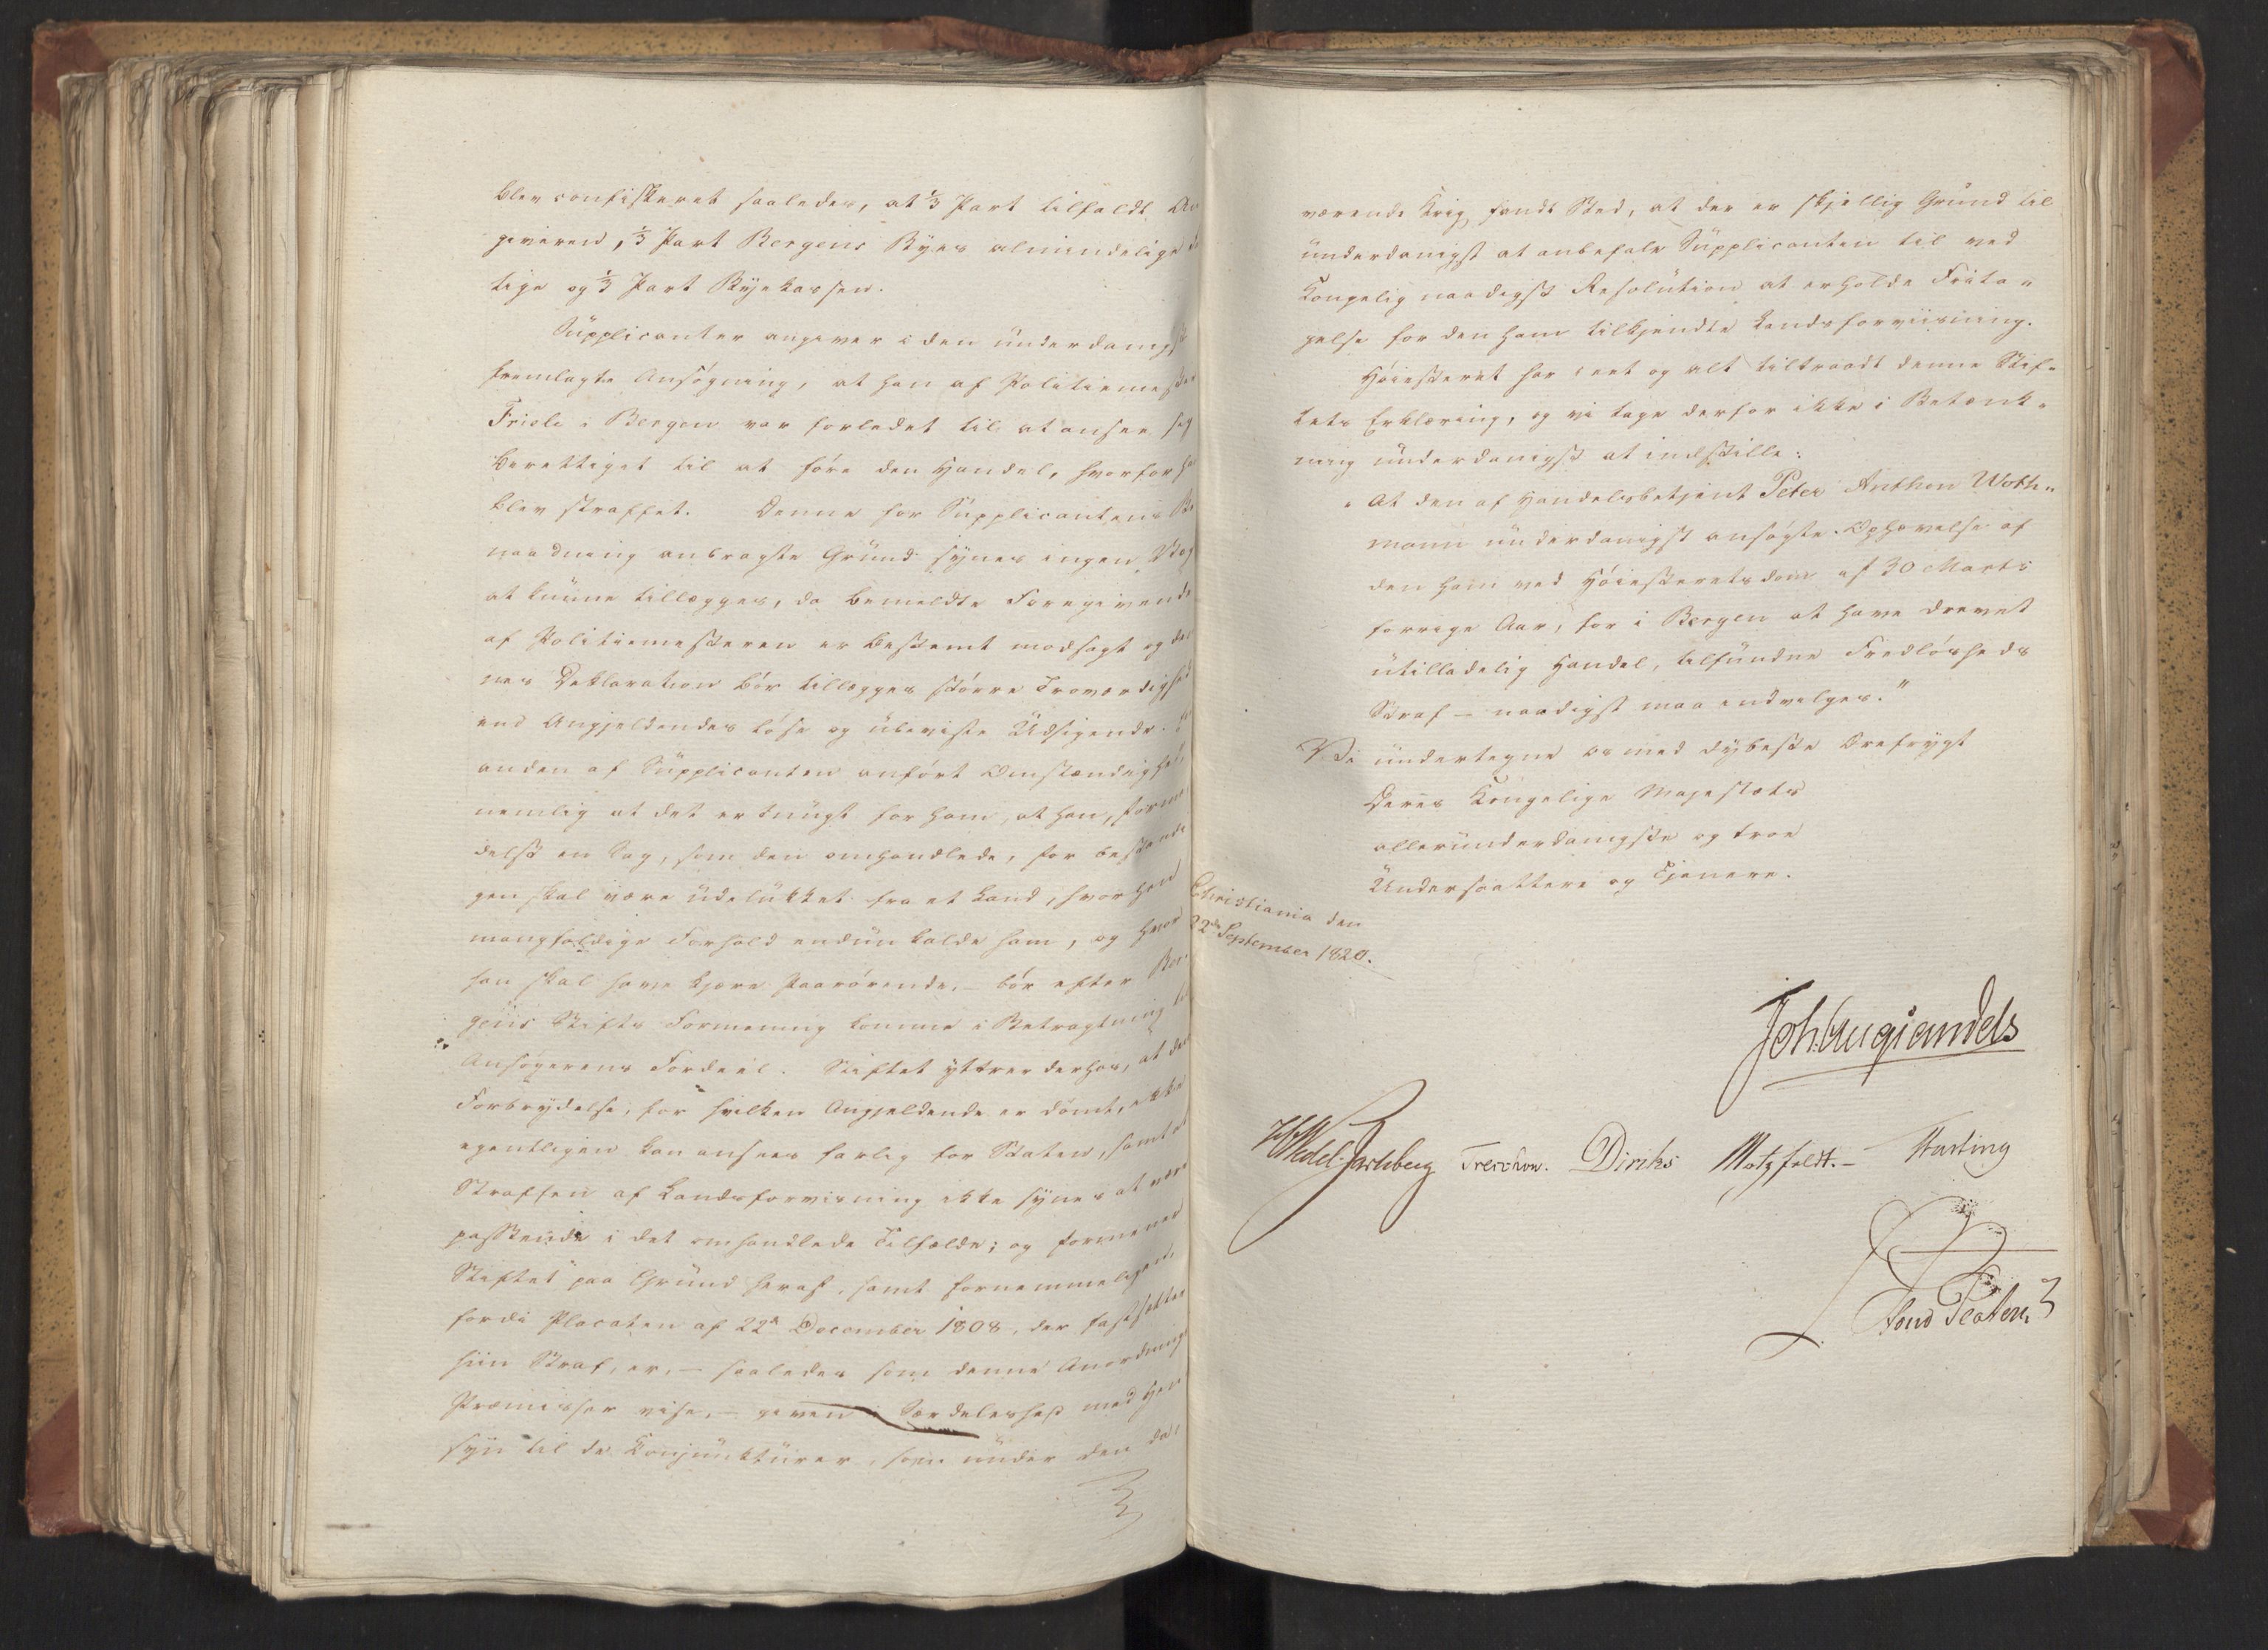 blev confiskeret saaledes, at 1/3 Part tilfaldt An
giveren, 1/3 Part Bergens Byes almindelige
tige og 1/3 Part Byekassen.
Supplicanten angiver i den underdanigst
fremlagte Ansøgning, at han af Politiemester
Friele i Bergen var forledet til at ansee sig
berettiget til at føre den Handel, hvorfor han
blev straffet. Denne for Supplicantens Be
naadning anbragte Grund synes ingen Vægt
at kunne tillægges, da bemeldte Foregivende
af Politiemesteren er bestemt modsagt og den
nes Deklaration bør tillægges større Troværdighed
end Angjeldendes løse og ubeviste Udsigende. En
anden af Supplicanten anført Omstændighed,
nemlig at det er tungt for ham, at han, forme
delst en Sag, som den omhandlede, for bestandi
gen skal være udelukket fra et Land, hvorhen
mangfoldige Forhold endnu kalde ham, og hvor
han skal have kjære Paarørende, - bør efter Ber
gens Stifts Formening komme i Betragtning til
Ansøgerens Fordeel. Stiftet yttrer derhos, at den
Forbrydelse, for hvilken Angjeldende er dømt, ikke
egentligen kan ansees farlig for Staten, samt at
Straffen af Landsforviisning ikke synes at være
passende i det omhandlede Tilfælde; og formener
Stiftet paa Grund heraf, samt fornemmeligen,
fordi Placaten af 22de December 1808, der fastsætter
hiin Straf, er, - saaledes som denne Anordnings
Præmisser vise, - given i Særdeleshed med Hen
syn til de Konjunkturer, som under den da
værende Krig fandt Sted, at der er skjellig Grund til
underdanigst at anbefale Supplicanten til ved
Kongelig naadigst Resolution at erholde Frita-
gelse for den ham tilkjendte Landsforviisning.
Høiesteret har reent og alt tiltraadt denne Stif-
tets Erklæring, og vi tage derfor ikke i Betænk-
ning underdanigst at indstille:
"At den af Handelsbetjent Peter Anthon Woth-
mann underdanigst ansøgte Ophævelse af
den ham ved Høiesteretsdom af 30 Marts
forrige Aar, for i Bergen at have drevet
utilladelig Handel, tilfundne Fredløsheds
Straf - naadigst maa indvilges."
Vi undertegne os med dybeste Ærefrygt
Deres Kongelige Majestæts
allerunderdanigste og troe
Undersaattere og Tjenere.
Christiania den
22de September 1820.
Joh. Aug. Sandels
HWedel-Jarlsberg Treschow. Diriks Motzfeldt. - Fasting